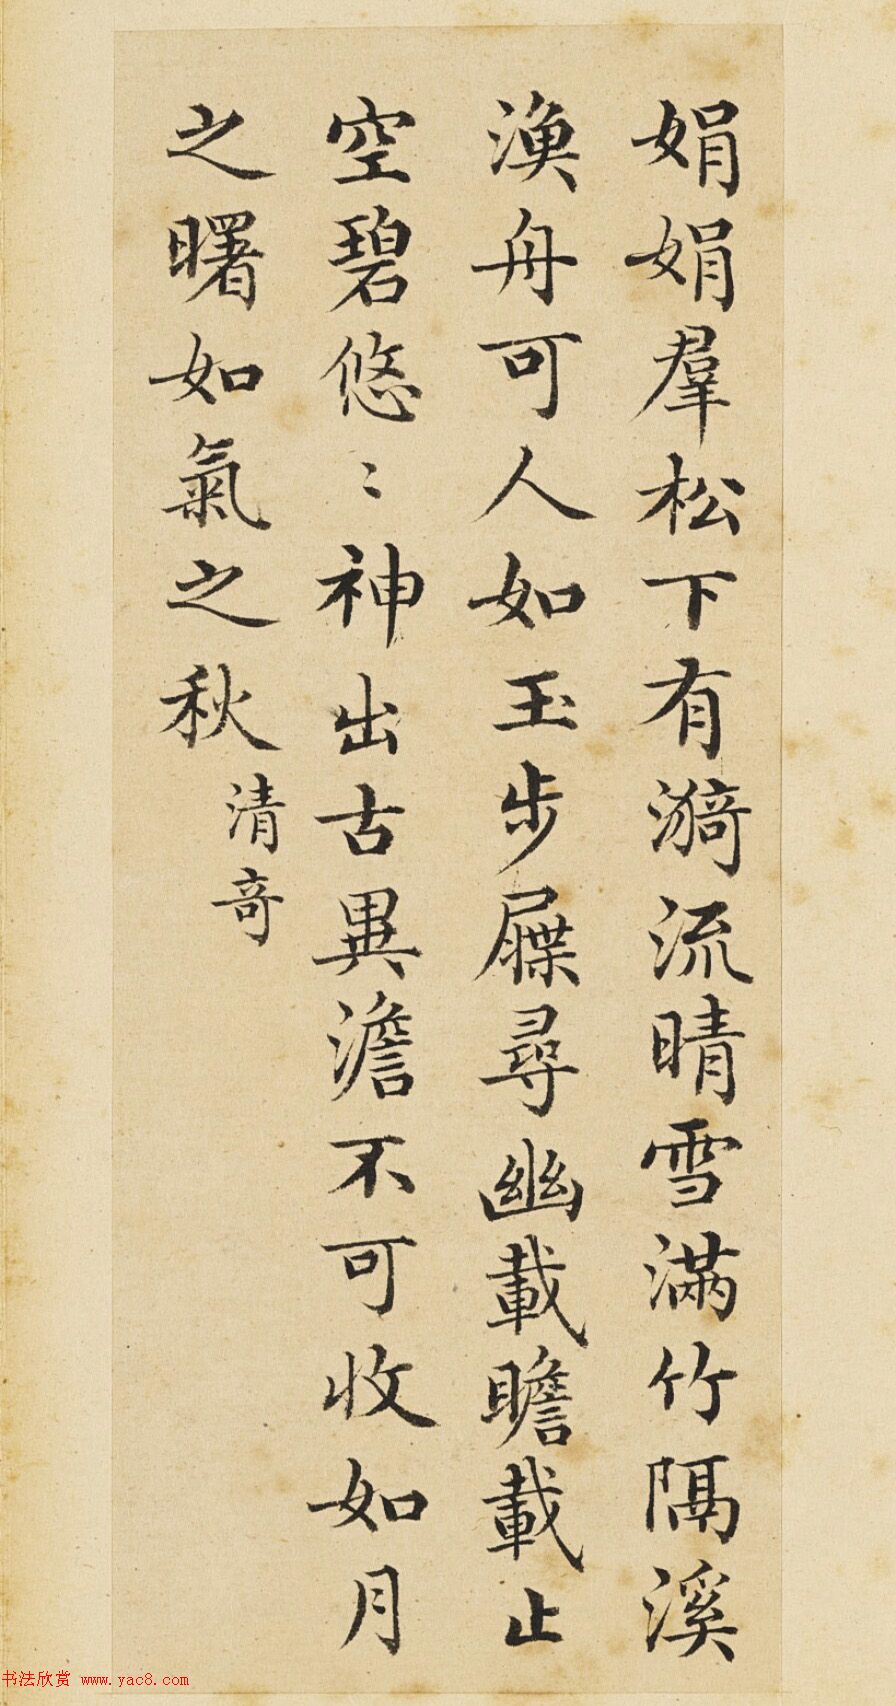 娟娟羣松下有漪流晴雪滿竹隔溪
漁舟可人如玉步屧尋幽載瞻載止
空碧悠〻神出古異澹不可收如月
之曙如氣之秋
清奇
书法欣赏 www.yac8.com